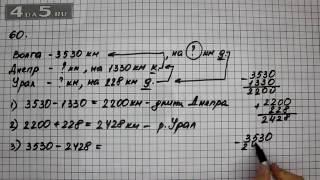 4ДЗ.su
60.
Волга - 3530 км
Днепр - ? км, на 1330 км к.
Урал - ? км, на 228 км д.
, на ? км д.
1) 3530 - 1330 = 2200 км - длина Днепра
2) 2200 + 228 = 2428 км - р. Урал
3) 3530 - 2428 =
- 3530
1330
2200
+ 2200
228
2428
- 3530
2